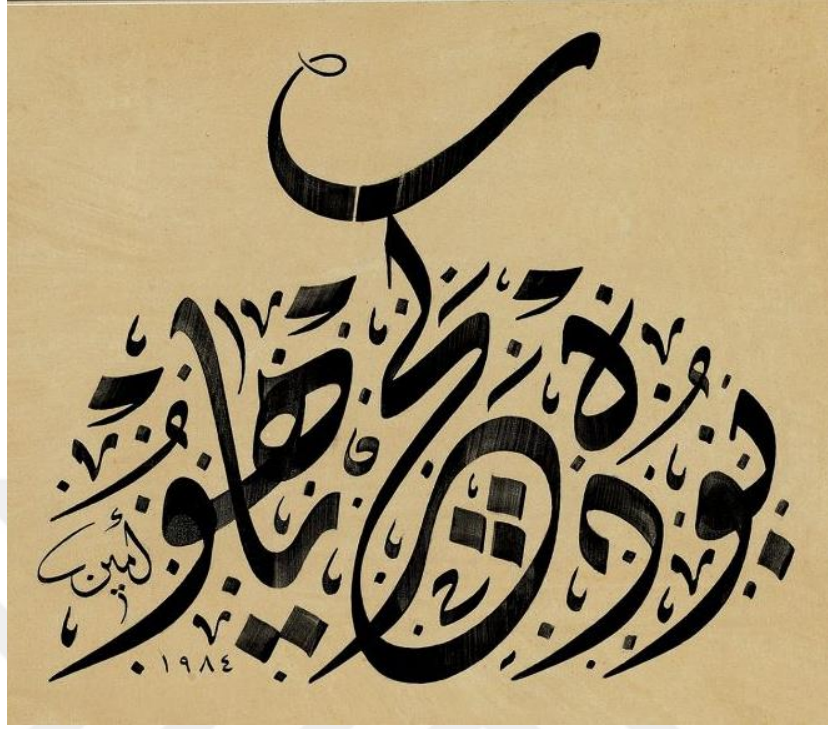 بو ده كچر يا هو
أمين
١٩٨٤